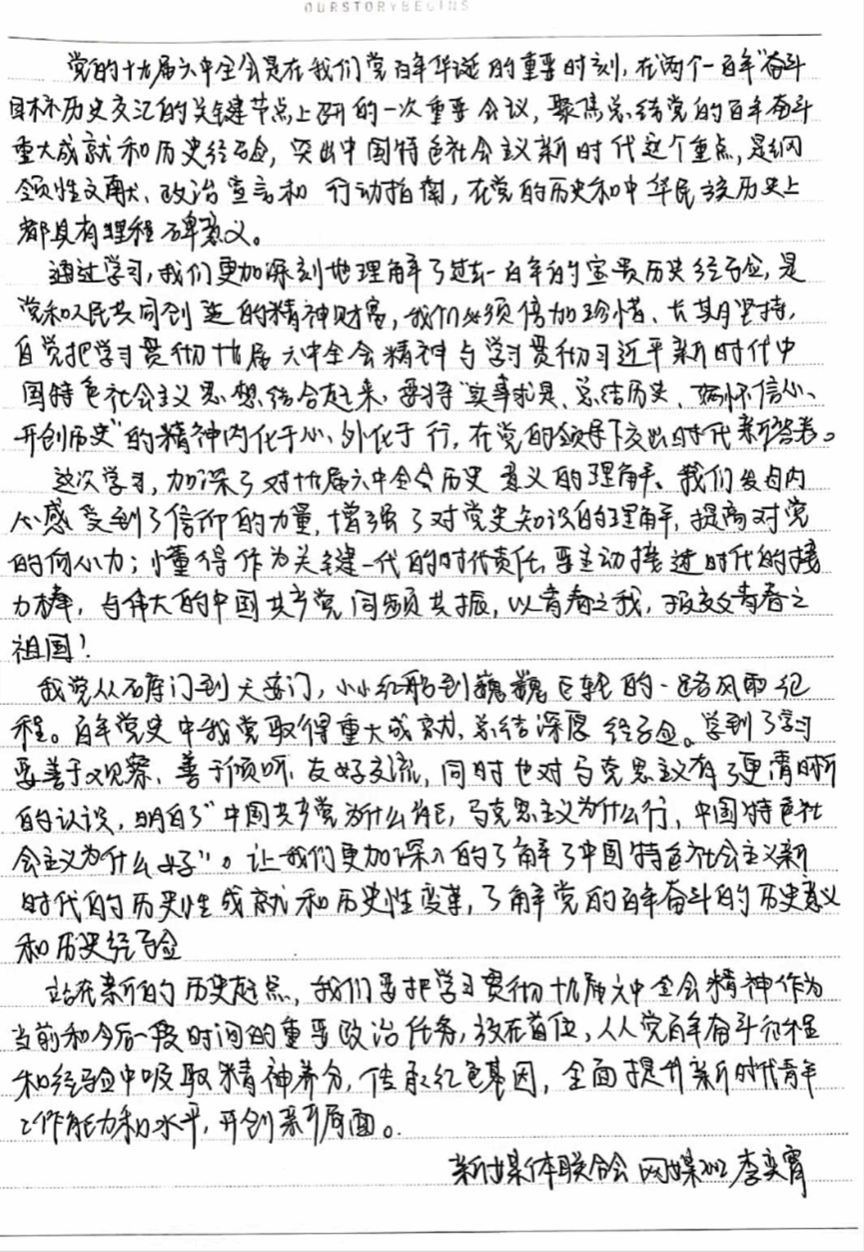 OURSTORYBEGINS
党的十九届六中全会是在我们党百年华诞的重要时刻,在"两个一百年"奋斗
目标历史交汇的关键节点上召开的一次重要会议,聚焦总结党的百年奋斗
重大成就和历史经验,突出中国特色社会主义新时代这个重点,是纲
领性文献、政治宣言和 行动指南,在党的历史和中华民族历史上
都具有里程碑意义。
通过学习,我们更加深刻地理解了过去一百年的宝贵历史经验,是
党和人民共同创造的精神财富,我们必须倍加珍惜、长期坚持,
自觉把学习贯彻十九届六中全会精神与学习贯彻习近平新时代中
国特色社会主义思想结合起来,要将"实事求是、总结历史、满怀信心、
开创历史"的精神内化于心、外化于行,在党的领导下交出时代新答卷。
这次学习,加深了对十九届六中全会历史意义的理解、我们发自内
心感受到了信仰的力量,增强了对党史知识的理解,提高对党
的向心力;懂得作为关键一代的时代责任,要主动接过时代的接
力棒,与伟大的中国共产党同频共振,以青春之我,报效青春之
祖国!
我党从石库门到天安门,小小红船到巍巍巨轮的一路风雨征
程。百年党史中我党取得重大成就、总结深厚经验。学到了学习
要善于观察、善于倾听、友好交流,同时也对马克思主义有了更清晰
的认识,明白了"中国共产党为什么能,马克思主义为什么行,中国特色社
会主义为什么好"。让我们更加深入的了解了中国特色社会主义新
时代的历史性成就和历史性变革,了解党的百年奋斗的历史意义
和历史经验
站在新的历史起点,我们要把学习贯彻十九届六中全会精神作为
当前和今后一段时间的重要政治任务,放在首位,从党百年奋斗征程
和经验中吸取精神养分,传承红色基因,全面提升新时代青年
工作能力和水平,开创新局面。
新媒体联合会 网媒 李奕霄